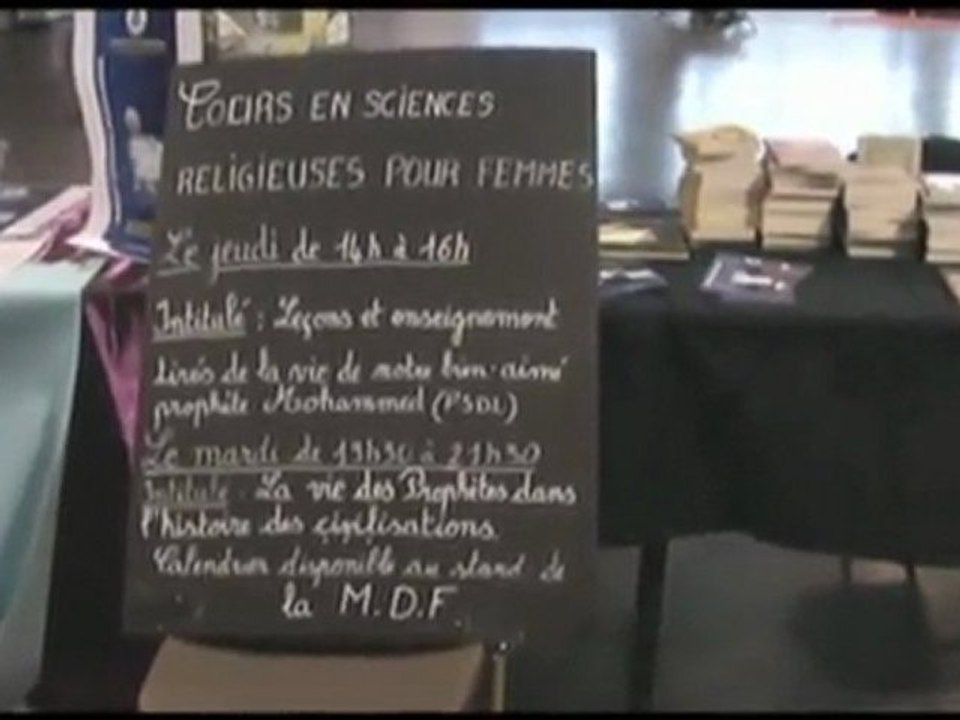 COURS EN SCIENCES
RELIGIEUSES POUR FEMMES
Le jeudi de 14h à 16h
Intitulé : Leçons et enseignement
tirés de la vie de notre bien-aimé
prophète Mohammed (PSDL)
Le mardi de 19h30 à 21h30
Intitulé : La vie des Prophètes dans
l'histoire des civilisations
Calendrier disponible au stand de
la M.D.F.